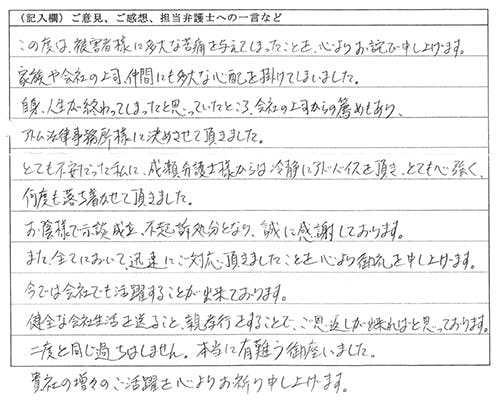 （記入欄）ご意見、ご感想、担当弁護士への一言など
この度は、被害者様に多大な苦痛を与えてしまったことを、心よりお詫び申し上げます。
家族や会社の上司、仲間にも多大な心配を掛けてしまいました。
自身、人生が終わってしまったと思っていたところ、会社の上司からの薦めもあり、
アトム法律事務所様に決めさせて頂きました。
とても不安だった私に、成瀬弁護士様からは冷静にアドバイスを頂き、とても心強く、
何度も落ち着かせて頂きました。
お陰様で示談成立、不起訴処分となり、誠に感謝しております。
また、全てにおいて、迅速にご対応頂きましたことを心より御礼を申し上げます。
今では会社でも活躍することが出来ております。
健全な会社生活を送ること、親孝行をすることで、ご恩返しが出来ればと思っております。
二度と同じ過ちはしません。本当に有難う御座いました。
貴社の増々のご活躍を心よりお祈り申し上げます。